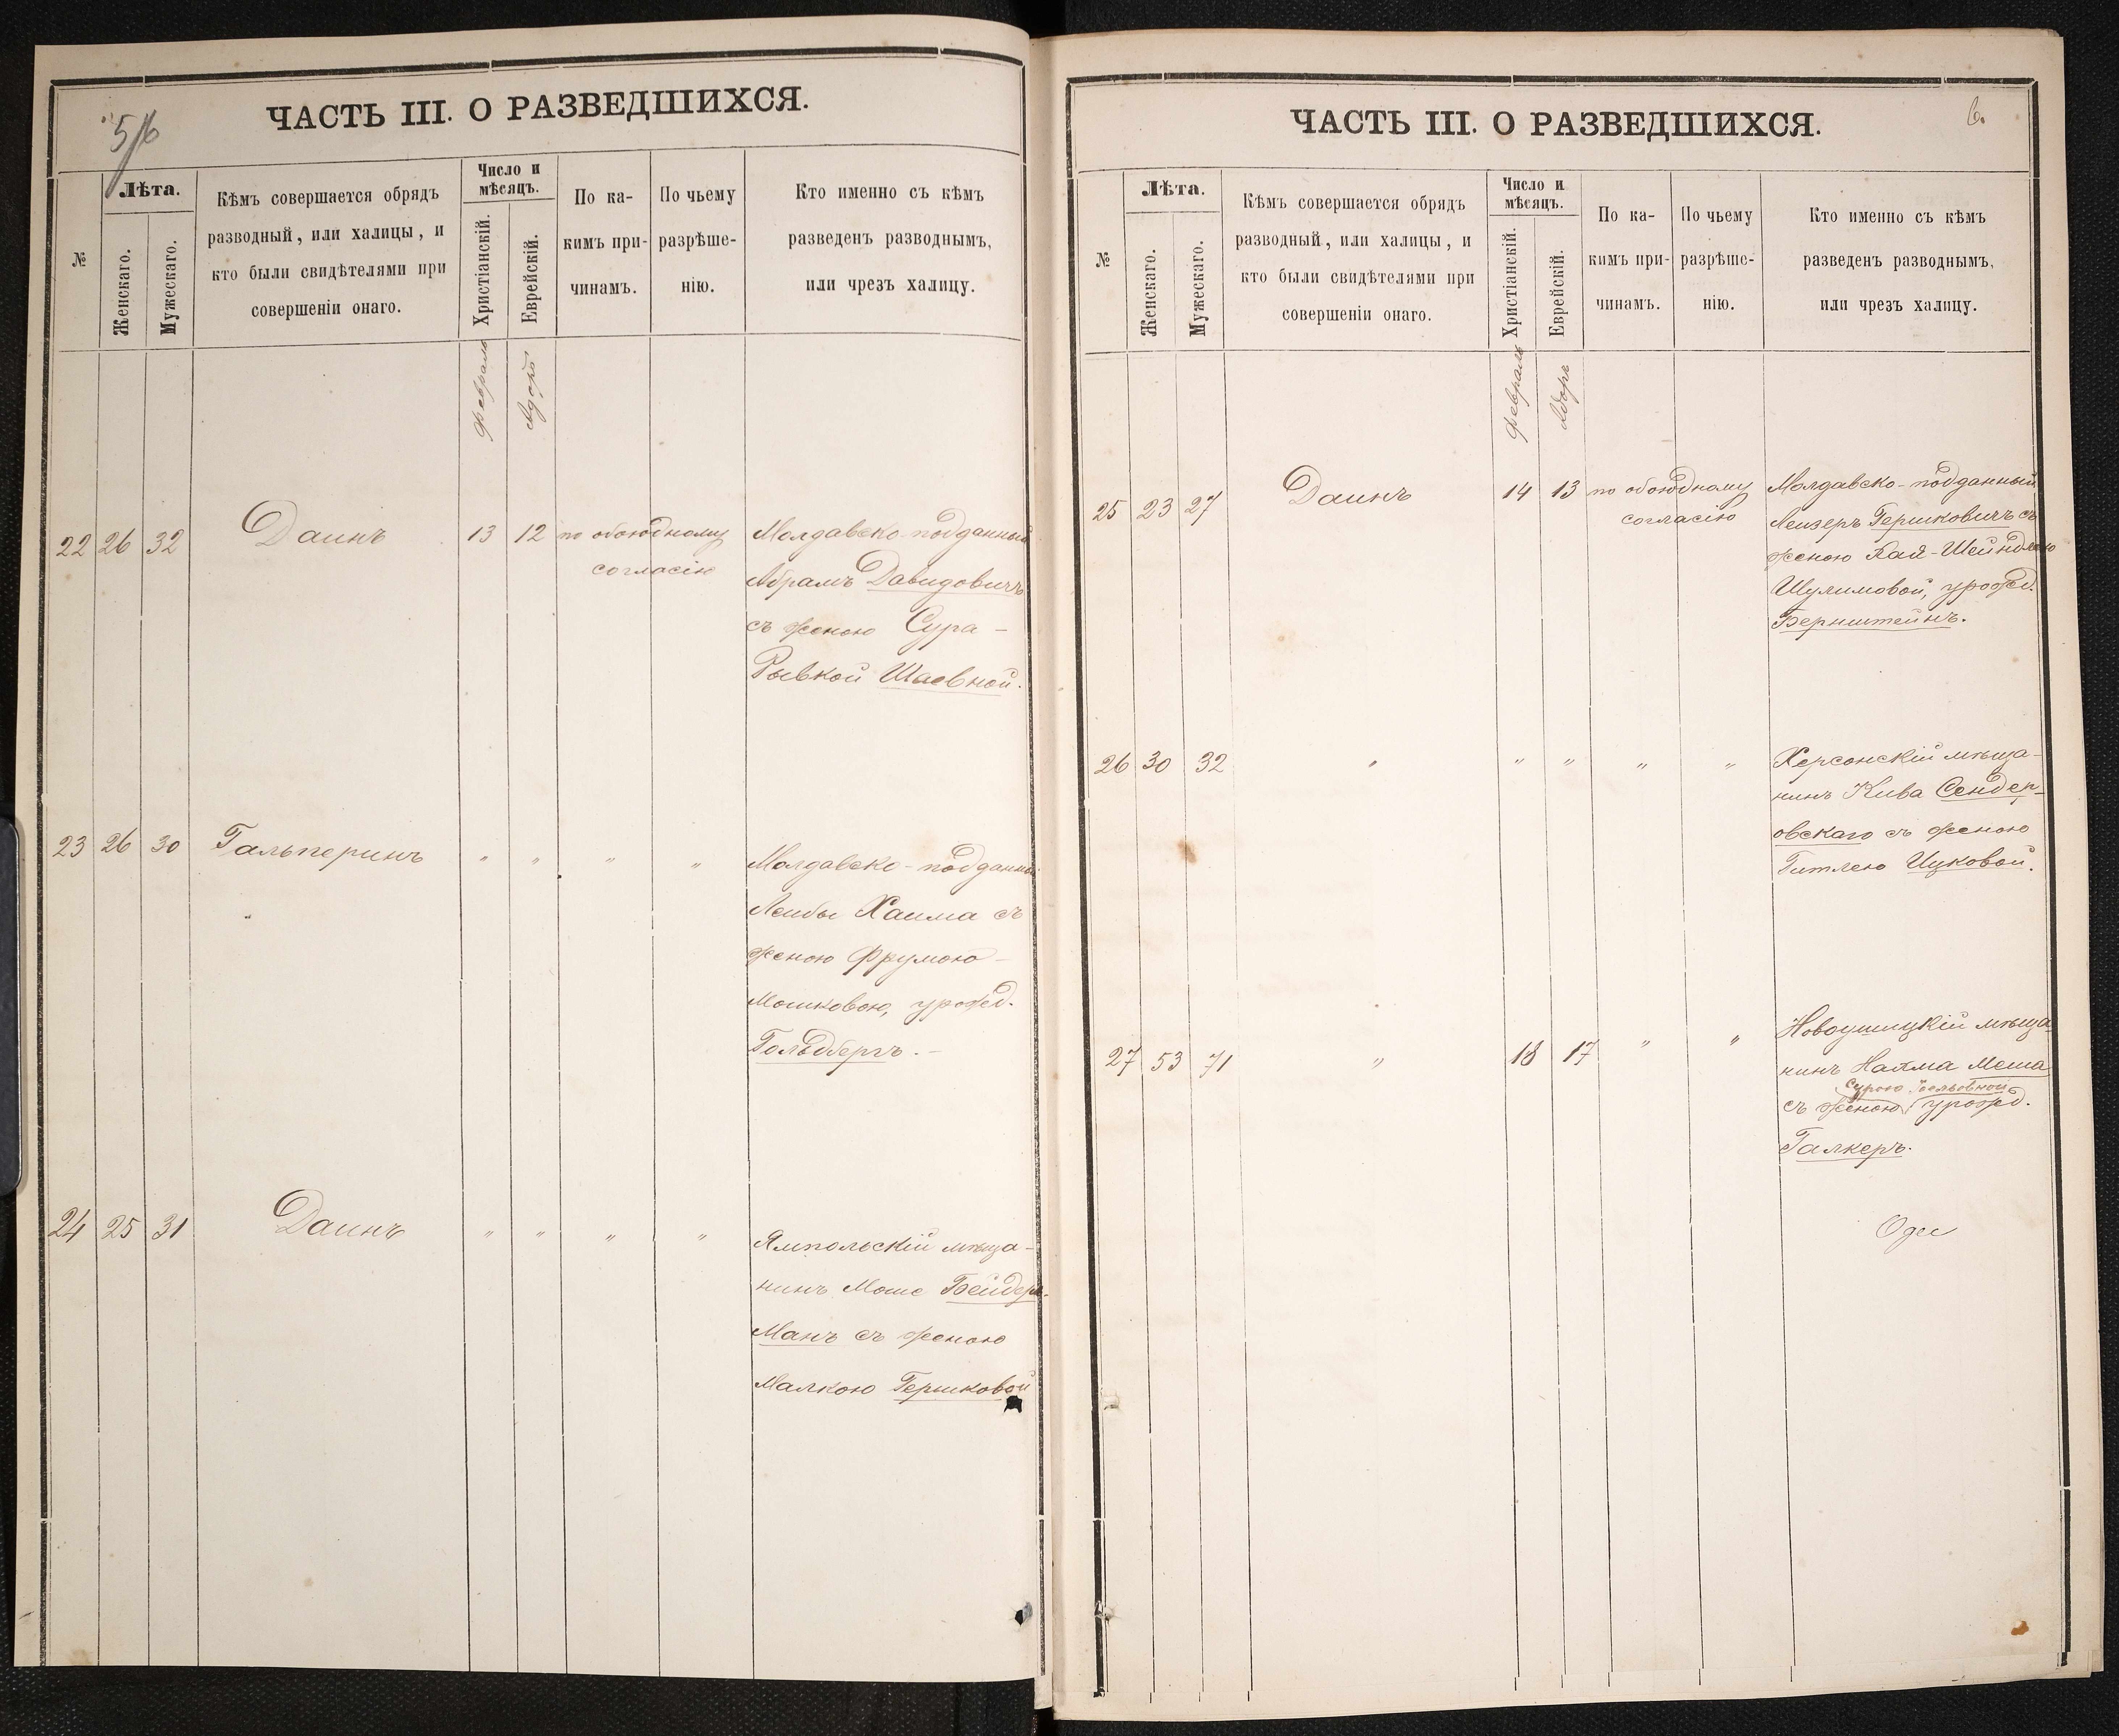 5/6
ЧАСТЬ III. О РАЗВЕДШИХСЯ.
№
Лѣта.
Женскаго.
Мужескаго.
Кѣмъ совершается обрядъ
разводный, или халицы, и
кто были свидѣтелями при
совершеніи онаго.
Число и
мѣсяцъ.
Христіанскій.
Еврейскій.
По ка-
кимъ при-
чинамъ.
По чьему
разрѣше-
нію.
Кто именно съ кѣмъ
разведенъ разводнымъ,
или чрезъ халицу.
Февраль
Адоръ
22 26 32 Даинъ 13 12 по обоюдному
согласію
Молдавско-подданный
Абрамъ Давидовичъ
съ женою Сура-
Рывкой Шаевной.
23 26 30 Гальперинъ " " " "
Молдавско-подданный
Лейбы Хаима съ
женою Фрумою-
Мошковою, урожд.
Гольдбергъ.-
24 25 31 Даинъ " " " "
Ямпольскій мѣща-
нинъ Моше Бейдер-
манъ съ женою
Малкою Гершковой
6.
ЧАСТЬ III. О РАЗВЕДШИХСЯ.
№
Лѣта.
Женскаго.
Мужескаго.
Кѣмъ совершается обрядъ
разводный, или халицы, и
кто были свидѣтелями при
совершеніи онаго.
Число и
мѣсяцъ.
Христіанскій.
Еврейскій.
По ка-
кимъ при-
чинамъ.
По чьему
разрѣше-
нію.
Кто именно съ кѣмъ
разведенъ разводнымъ,
или чрезъ халицу.
Февраль
Адоръ
25 23 27 Даинъ 14 13 по обоюдному
согласію
Молдавско-подданный
Лейзеръ Гершковичъ съ
женою Хая-Шейндлею
Шулимовой, урожд.
Бернштейнъ.
26 30 32 " " " " "
Херсонскій мѣща-
нинъ Кива Сендер-
овскаго съ женою
Гитлею Ицковой.
27 53 71 " 18 17 " "
Новоушицкій мѣща-
нинъ Меша
Сурою
съ женою урожд.
Галкеръ.
Одес